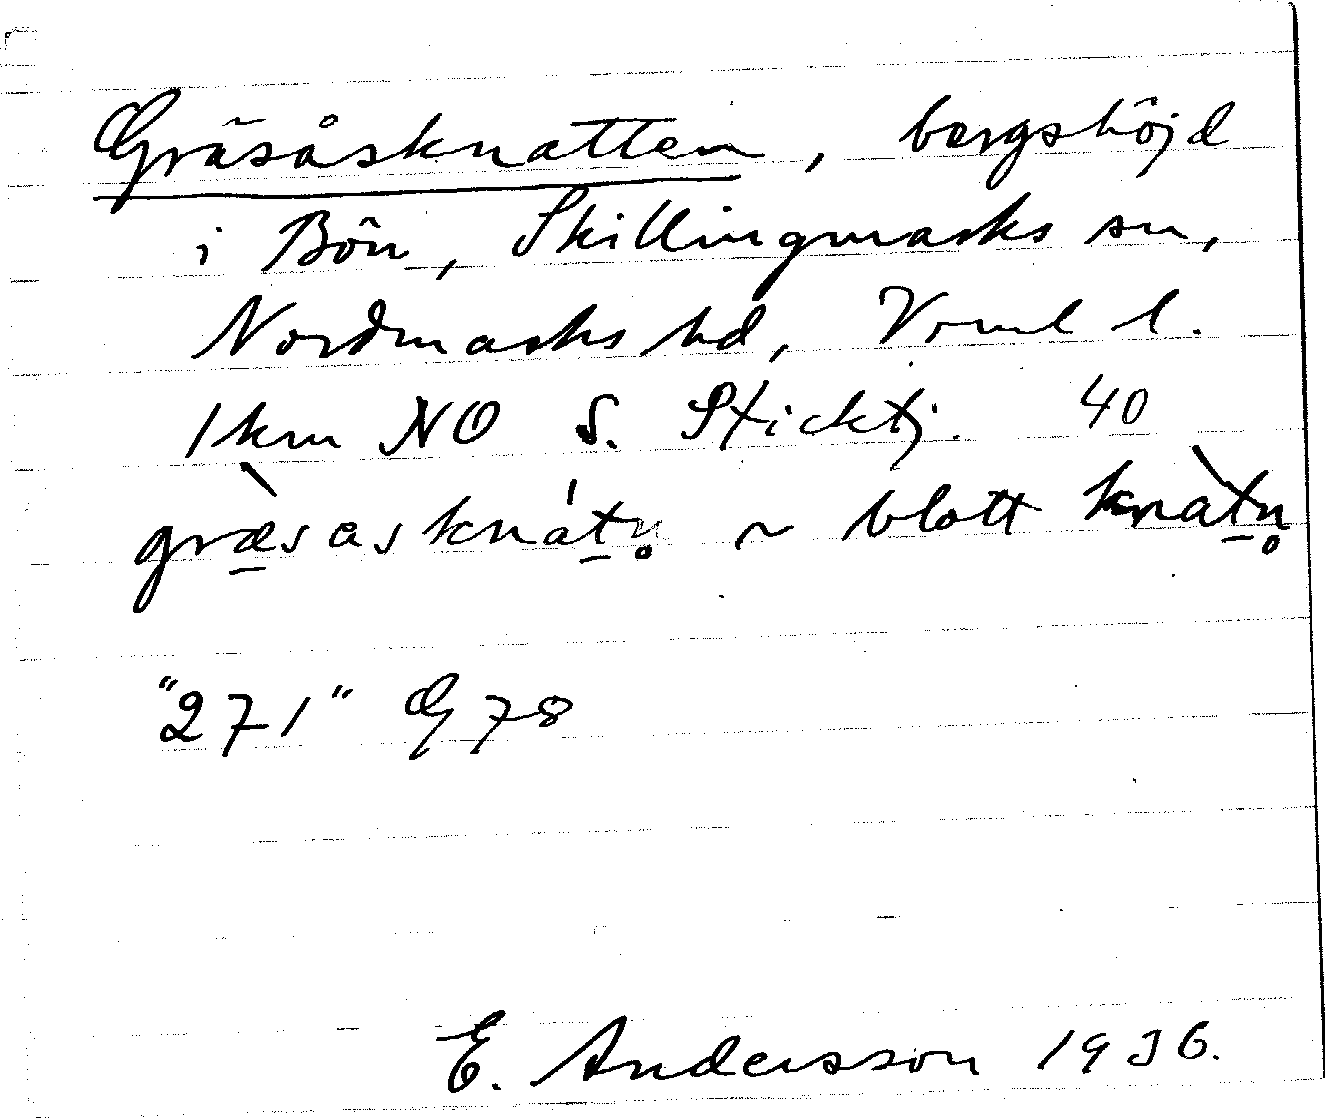 Gräsåsknatten, bergshöjd
i Bön, Skillingmarks sn,
Nordmarks hd, Vrml l.
1 km NO S. Sticktj. 40
græ̲̀sasknát̲n̥ ~ blott knàt̲n̥
"271" G 78
E. Andersson 1936.